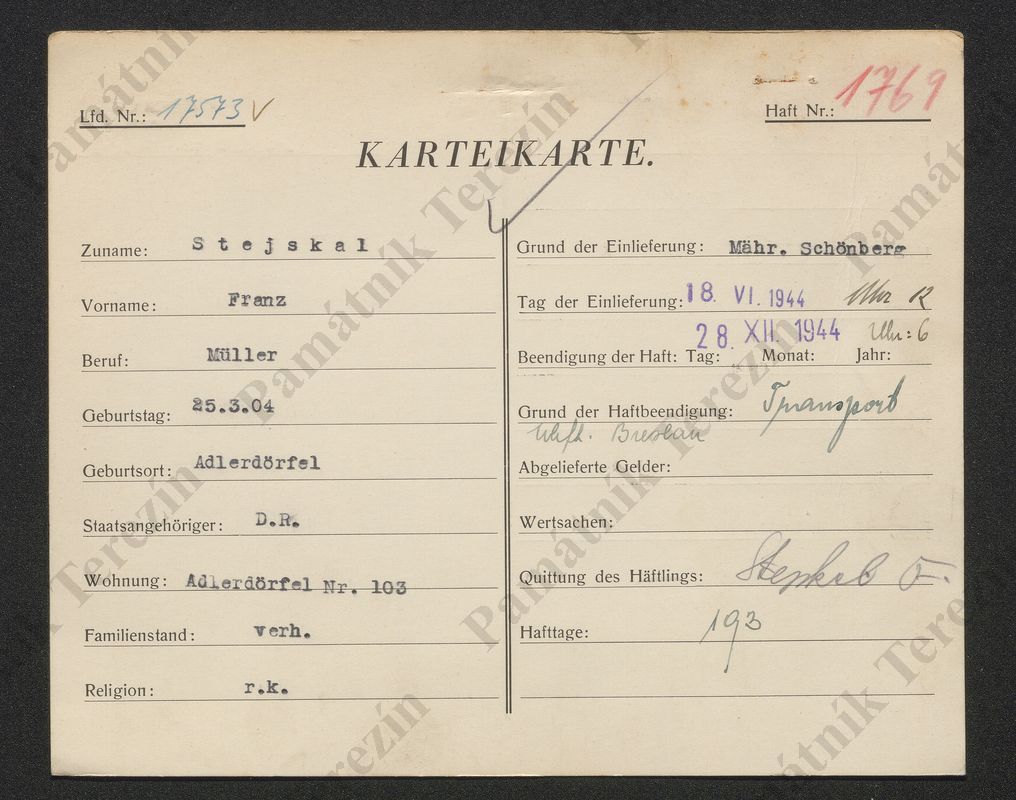 Lfd. Nr.: 17573 V
Haft Nr.: 1769
KARTEIKARTE.
Zuname: Stejskal
Vorname: Franz
Beruf: Müller
Geburtstag: 25.3.04
Geburtsort: Adlerdörfel
Staatsangehöriger: D.R.
Wohnung: Adlerdörfel Nr. 103
Familienstand: verh.
Religion: r.k.
Grund der Einlieferung: Mähr. Schönberg
Tag der Einlieferung: 18. VI. 1944 Uhr 12
28. XII. 1944 Uhr: 6
Beendigung der Haft: Tag: Monat: Jahr:
Grund der Haftbeendigung: Transport
Breslau
Abgelieferte Gelder:
Wertsachen:
Quittung des Häftlings:
Hafttage: 193
Památník Terezín